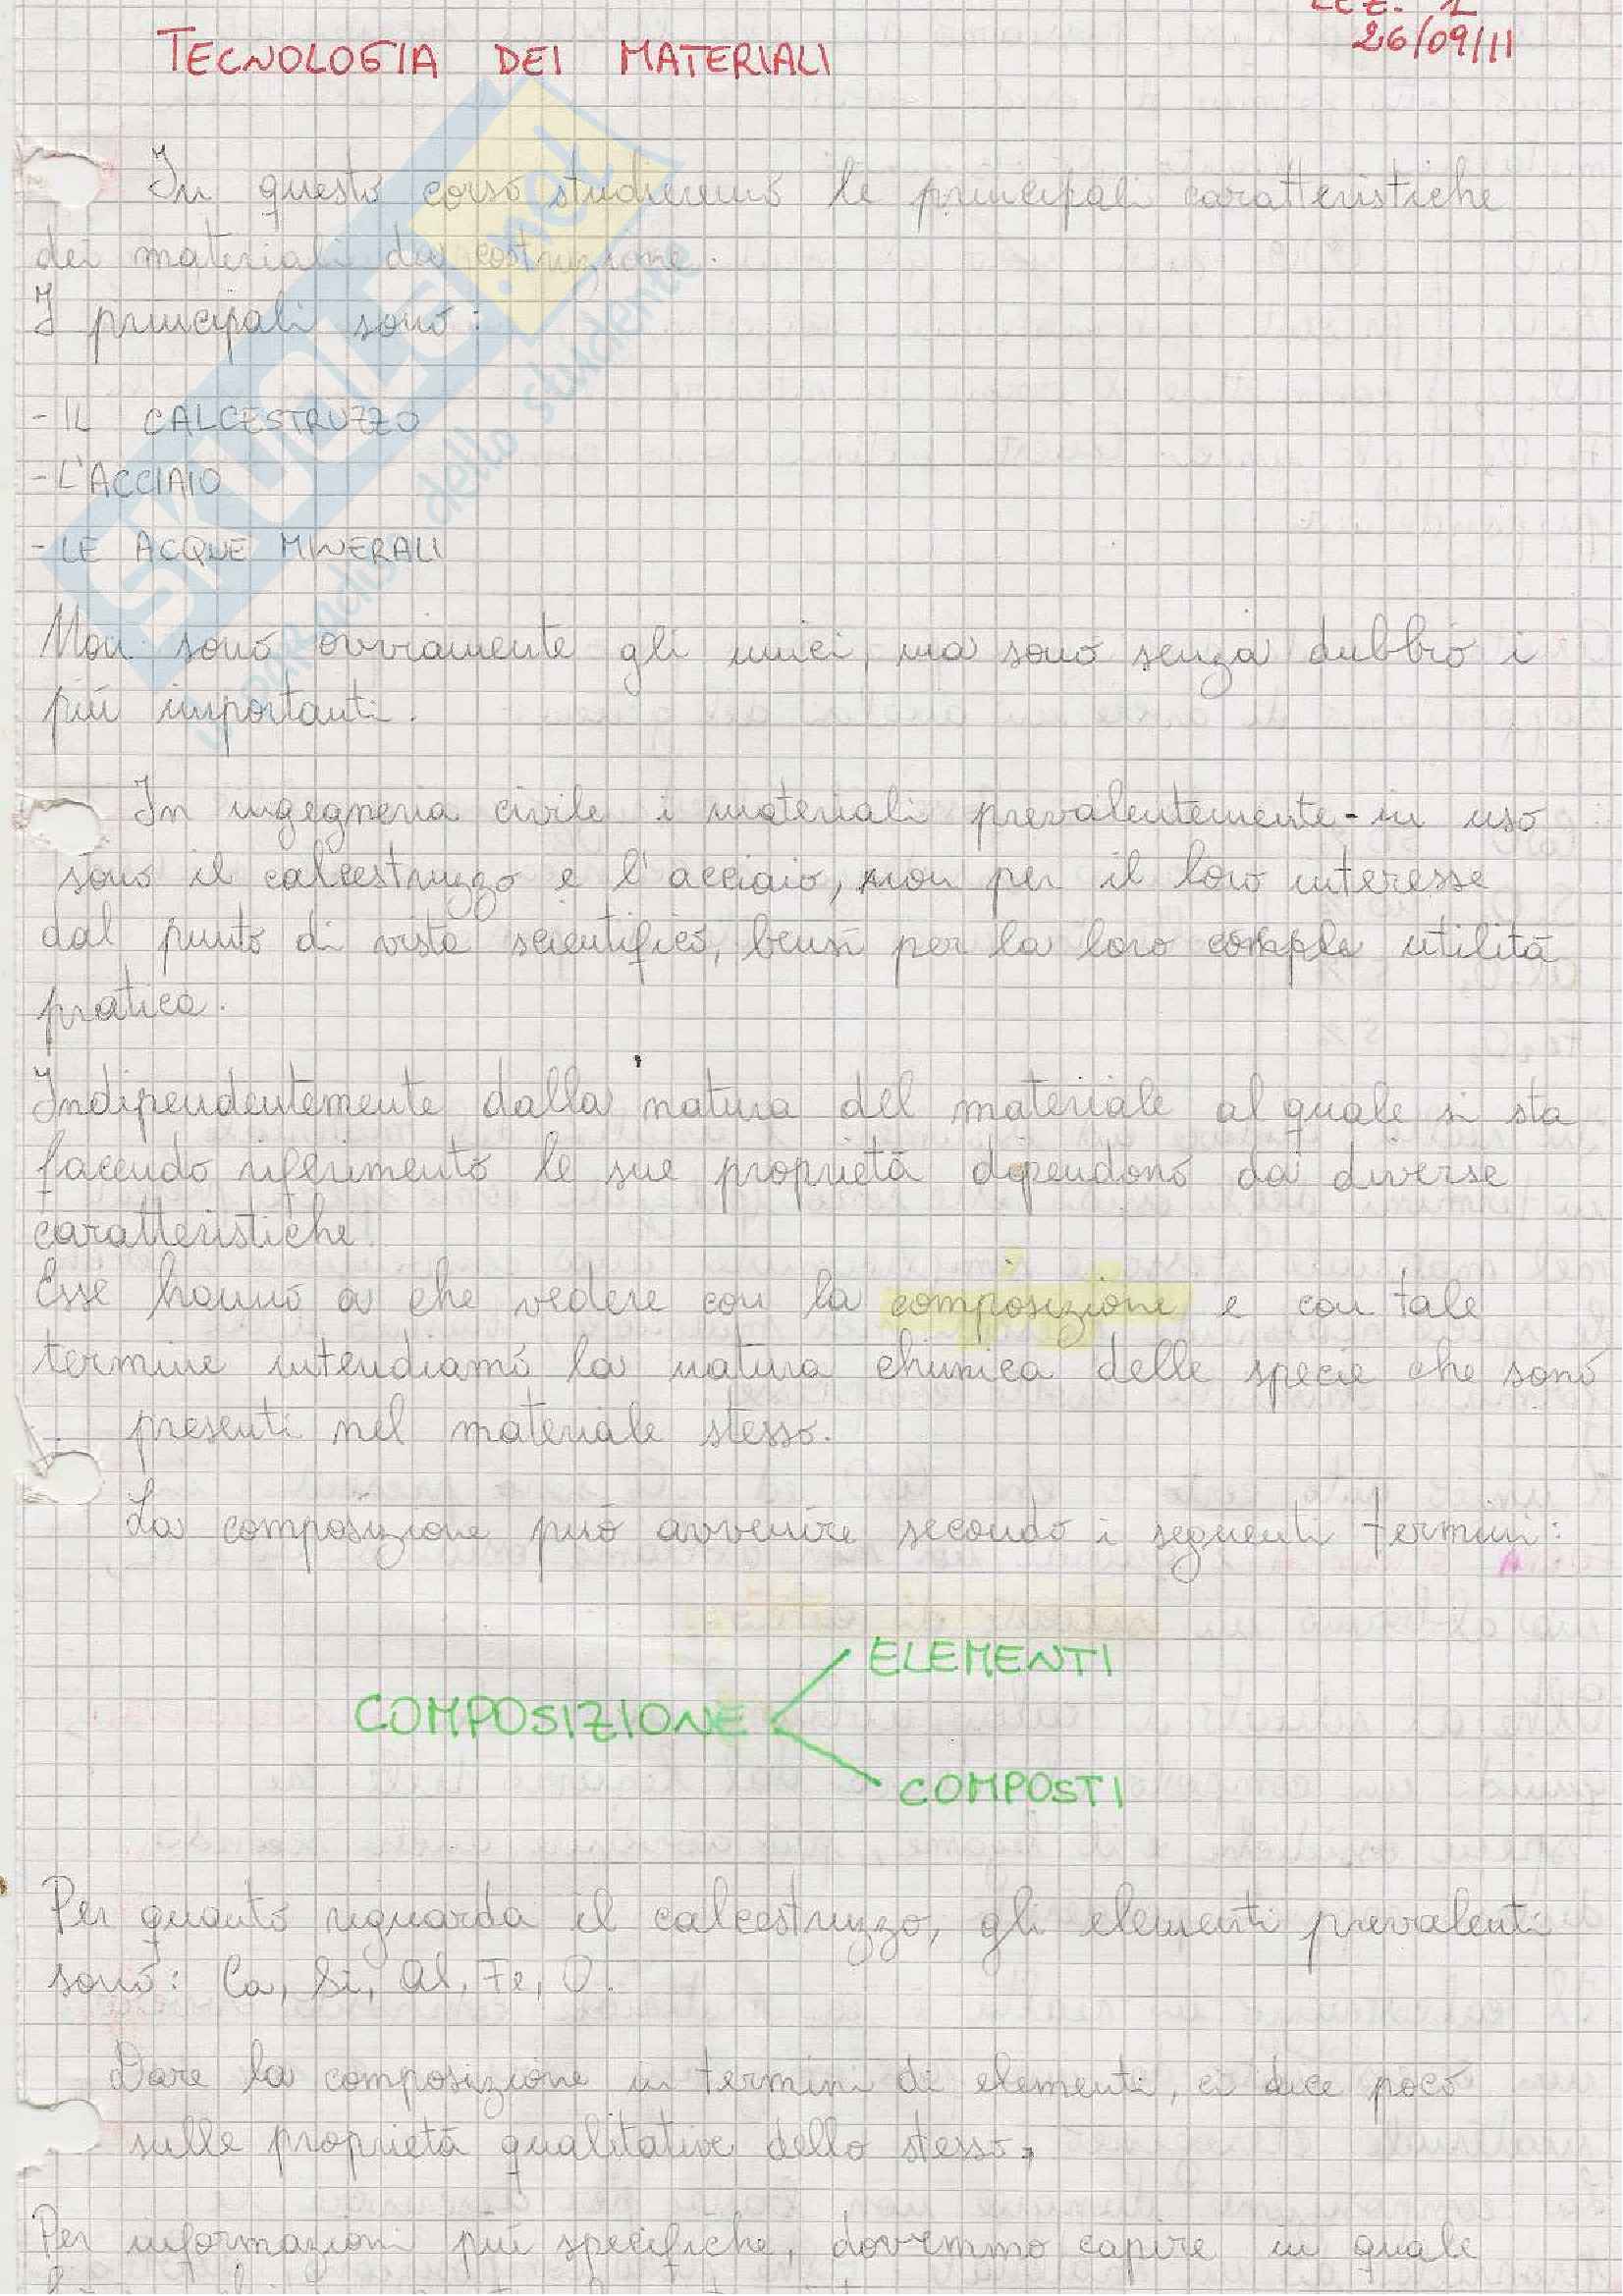 LEZ. 1
TECNOLOGIA DEI MATERIALI 26/09/11
In questo corso studieremo le principali caratteristiche
dei materiali da costruzione.
I principali sono:
- IL CALCESTRUZZO
- L'ACCIAIO
- LE ACQUE MINERALI
Non sono ovviamente gli unici, ma sono senza dubbio i
più importanti.
In ingegneria civile i materiali prevalentemente - in uso
sono il calcestruzzo e l'acciaio, non per il loro interesse
dal punto di vista scientifico, bensì per la loro utilità
pratica.
Indipendentemente dalla natura del materiale al quale si sta
facendo riferimento le sue proprietà dipendono da diverse
caratteristiche.
Esse hanno a che vedere con la composizione e con tale
termine intendiamo la natura chimica delle specie che sono
presenti nel materiale stesso.
La composizione può avvenire secondo i seguenti termini:
ELEMENTI
COMPOSIZIONE
COMPOSTI
Per quanto riguarda il calcestruzzo, gli elementi prevalenti
sono: Ca, Si, Al, Fe, O.
Dare la composizione in termini di elementi, ci dice poco
sulle proprietà qualitative dello stesso.
Per informazioni più specifiche, dovremmo capire in quale
SKUOLA.net
il paradiso dello studente